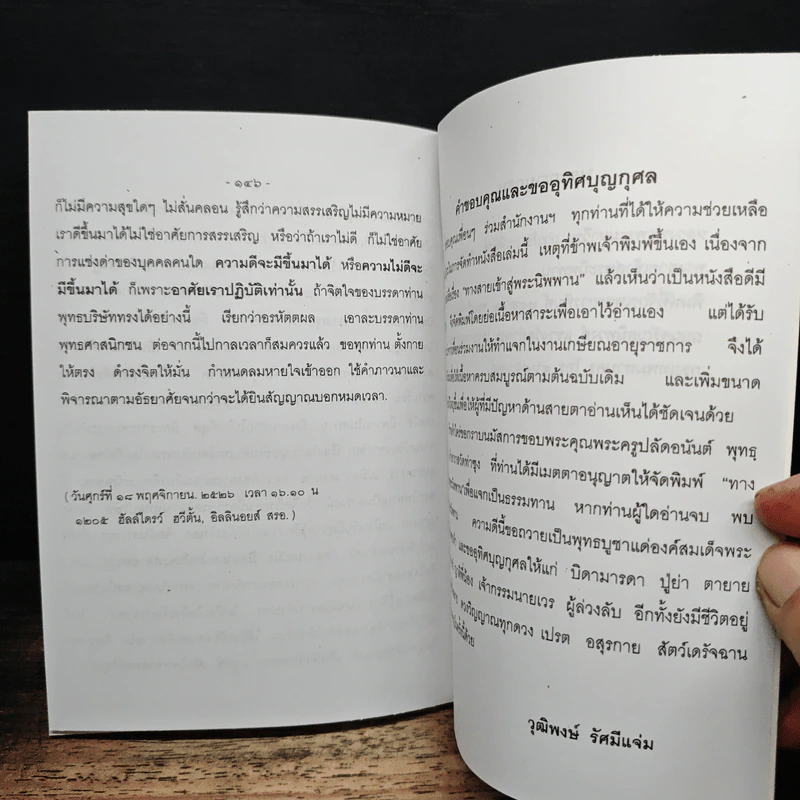 - ๑๔๖ -
ก็ไม่มีความสุขใดๆ ไม่สั่นคลอน รู้สึกว่าความสรรเสริญไม่มีความหมาย
เราดีขึ้นมาได้ไม่ใช่อาศัยการสรรเสริญ หรือว่าถ้าเราไม่ดี ก็ไม่ใช่อาศัย
การแช่งด่าของบุคคลคนใด ความดีจะมีขึ้นมาได้ หรือความไม่ดีจะ
มีขึ้นมาได้ ก็เพราะอาศัยเราปฏิบัติเท่านั้น ถ้าจิตใจของบรรดาท่าน
พุทธบริษัททรงได้อย่างนี้ เรียกว่าอรหัตตผล เอาละบรรดาท่าน
พุทธศาสนิกชน ต่อจากนี้ไปกาลเวลาก็สมควรแล้ว ขอทุกท่าน ตั้งกาย
ให้ตรง ดำรงจิตให้มั่น กำหนดลมหายใจเข้าออก ใช้คำภาวนาและ
พิจารณาตามอัธยาศัยจนกว่าจะได้ยินสัญญาณบอกหมดเวลา.
(วันศุกร์ที่ ๑๘ พฤศจิกายน. ๒๕๒๖ เวลา ๑๖.๑๐ น
๑๒๐๕ ฮัลล์ไดรว์ ฮวีตั้น, อิลลินอยส์ สรอ.)
คำขอบคุณและขออุทิศบุญกุศล
ร่วมสำนักงานฯ ทุกท่านที่ได้ให้ความช่วยเหลือ
ในการจัดทำหนังสือเล่มนี้ เหตุที่ข้าพเจ้าพิมพ์ขึ้นเอง เนื่องจาก
"ทางสายเข้าสู่พระนิพพาน" แล้วเห็นว่าเป็นหนังสือดีมี
จัดพิมพ์โดยย่อเนื้อหาสาระเพื่อเอาไว้อ่านเอง แต่ได้รับ
เพื่อนร่วมงานให้ทำแจกในงานเกษียณอายุราชการ จึงได้
ให้เนื้อหาครบสมบูรณ์ตามต้นฉบับเดิม และเพิ่มขนาด
ขึ้นเพื่อให้ผู้ที่มีปัญหาด้านสายตาอ่านเห็นได้ชัดเจนด้วย
ขอกราบนมัสการขอบพระคุณพระครูปลัดอนันต์ พุทธฺ
วัดท่าซุง ที่ท่านได้มีเมตตาอนุญาตให้จัดพิมพ์ "ทาง
เพื่อแจกเป็นธรรมทาน หากท่านผู้ใดอ่านจบ พบ
ความดีนี้ขอถวายเป็นพุทธบูชาแด่องค์สมเด็จพระ
และขออุทิศบุญกุศลให้แก่ บิดามารดา ปู่ย่า ตายาย
เจ้ากรรมนายเวร ผู้ล่วงลับ อีกทั้งยังมีชีวิตอยู่
ดวงวิญญาณทุกดวง เปรต อสุรกาย สัตว์เดรัจฉาน
วุฒิพงษ์ รัศมีแจ่ม